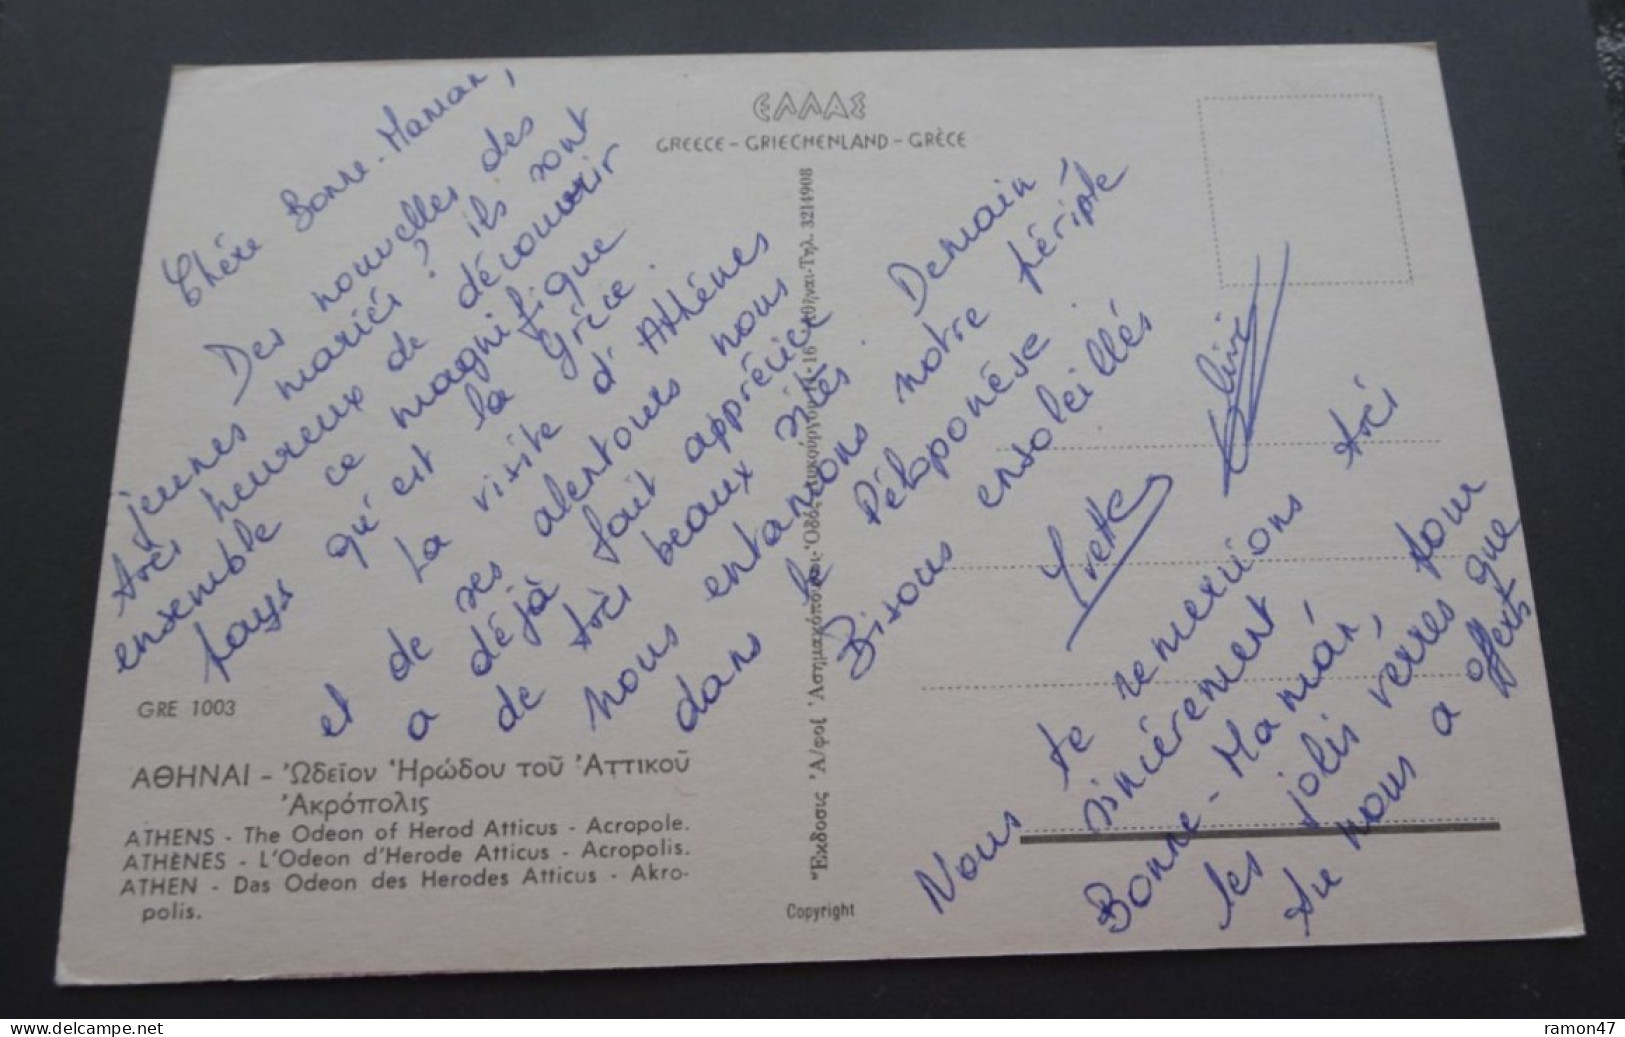 ΕΛΛΑΣ
GREECE - GRIECHENLAND - GRÈCE
Chère Bonne-Maman,
Des nouvelles des
jeunes mariés ? ils sont
très heureux de découvrir
ensemble ce magnifique
pays qu'est la Grèce.
La visite d'Athénes
et de ses alentours nous
a déjà fait apprécier
de très beaux sites. Demain
nous entamons notre périple
dans le Péloponése.
Bisous ensoleillés
Yvette
Nous te remercions très
sincérement
Bonne-Maman, pour
les jolis verres que
tu nous a offerts
GRE 1003
ΑΘΗΝΑΙ - Ὠδεῖον Ἡρώδου τοῦ Ἀττικοῦ
Ἀκρόπολις
ATHENS - The Odeon of Herod Atticus - Acropole.
ATHÈNES - L'Odeon d'Herode Atticus - Acropolis.
ATHEN - Das Odeon des Herodes Atticus - Akro-
polis.
Ἔκδοσις Ἀ/φοὶ Ἀσημακόπουλοι·Ὁδὸς Λυκούργου 14-16 Ἀθῆναι-Τηλ. 3214908
Copyright
www.delcampe.net
ramon47